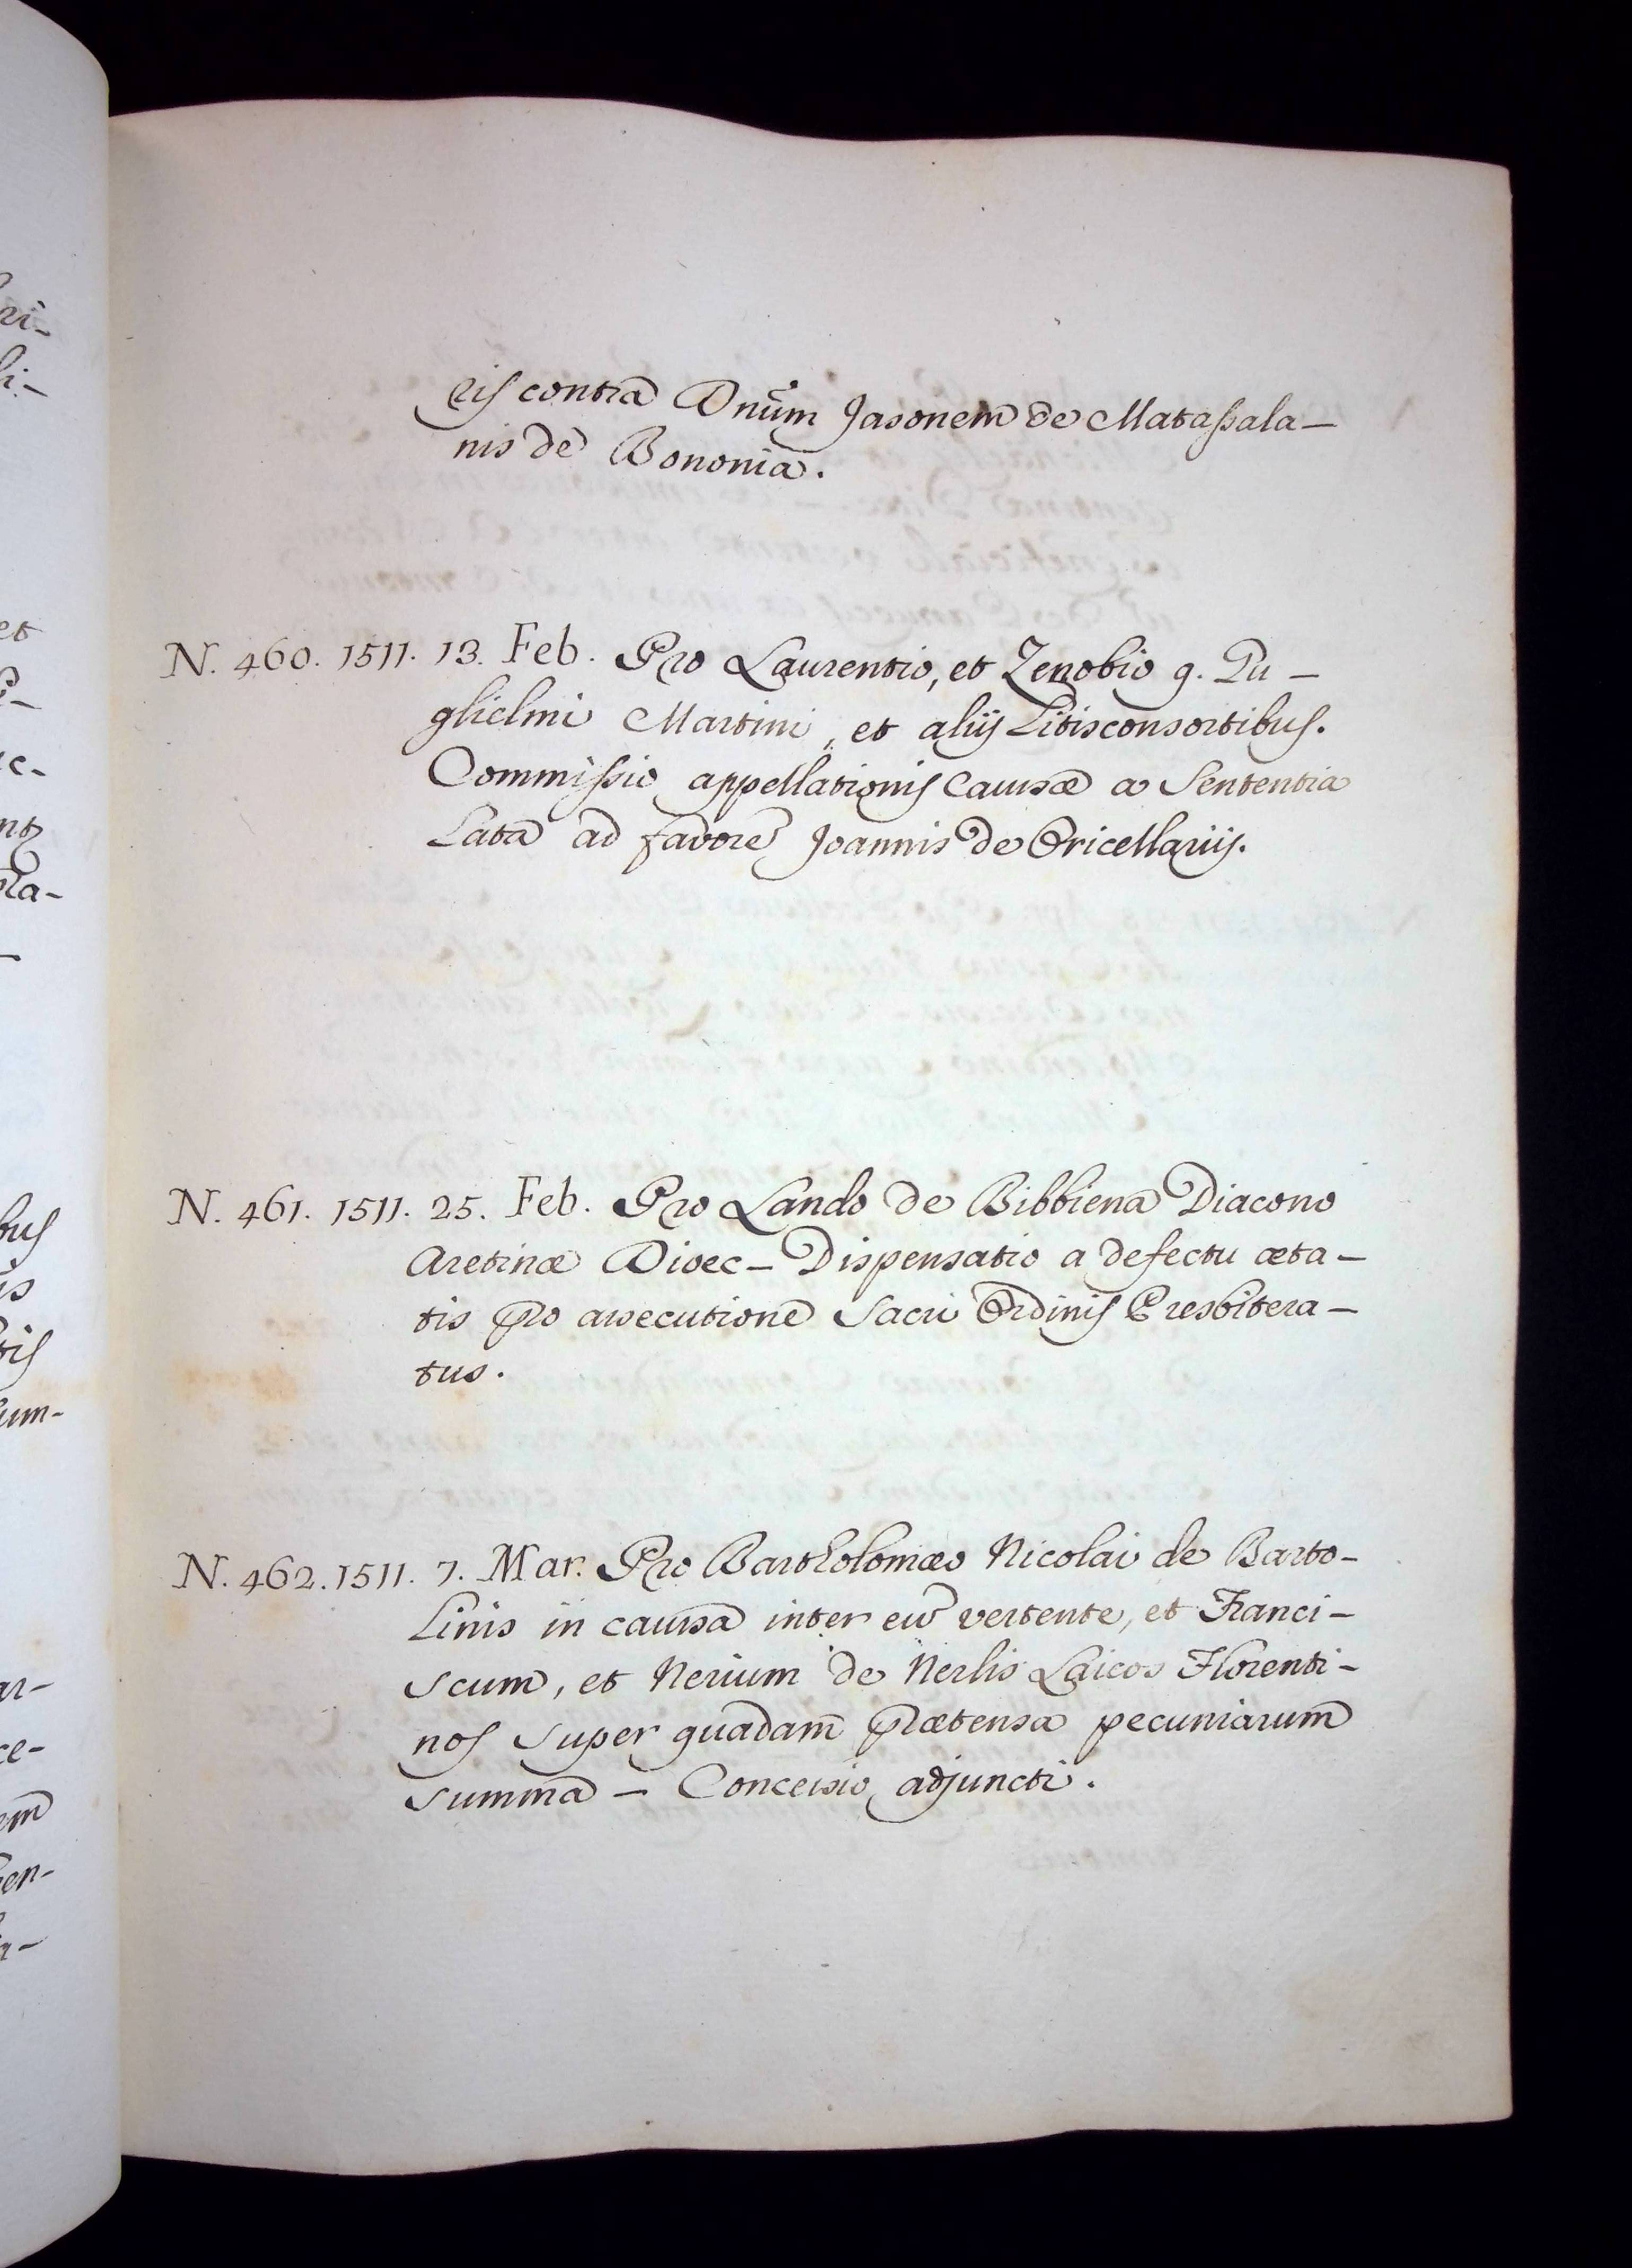 eis contra Dnūm Jasonem de Matassala-
nis de Bononia.
N. 460. 1511. 13. Feb. Pro Laurentio, et Zenobio q. Pu-
glielmi Martini, et aliis Litisconsortibus.
Commissio appellationis Causæ a Sententia
Lata ad favore Joannis de Oricellariis.
N. 461. 1511. 25. Feb. Pro Lando de Bibbiena Diacono
Aretinæ Dioec- Dispensatio a defectu æta-
tis pro assecutione Sacri Ordinis Presbitera-
tus.
N. 462. 1511. 7. Mar. Pro Bartholomæo Nicolai de Barto-
linis in causa inter eū vertente, et Franci-
scum, et Nerium de Nerlis Laicos Florenti-
nos super quadam prætensa pecuniarum
summa - Concessio adjuncti.